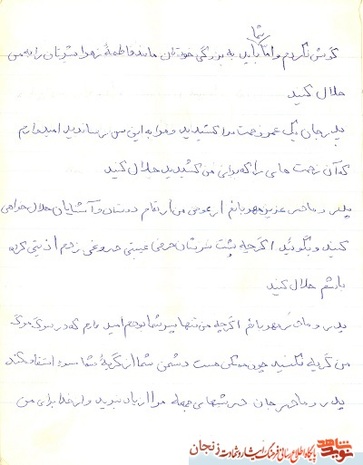 شما
گوش نکردم و اما باید به بزرگی خودتان مانند فاطمهٔ زهرا شیرتان را به من
حلال کنید
پدر جان یک عمر زحمت مرا کشیدید و مرا به این سن رساندید امیدوارم
که آن زحمت هایی را که برای من کشیدید حلال کنید
پدر و مادر عزیز مهربانم از عوض من از تمام دوستان و آشنایان حلال خواهی
کنید و بگوئید اگر چه پشت سرتان حرفی غیبتی دروغی زدم اذیتی کرده
باشم حلال کنید
پدر و مادر مهربانم اگر چه من تنها پسر شما بودم امید دارم که در سوگ مرگ
من گریه نکنید چون ممکن است دشمن شما از گریهٔ شما سوء استفاده کند
پدر و مادر جان در شبهای جمعه مرا از یاد نبرید و از خدا برای من
نوید شاهد
پایگاه اطلاع رسانی فرهنگ ایثار و شهادت زنجان